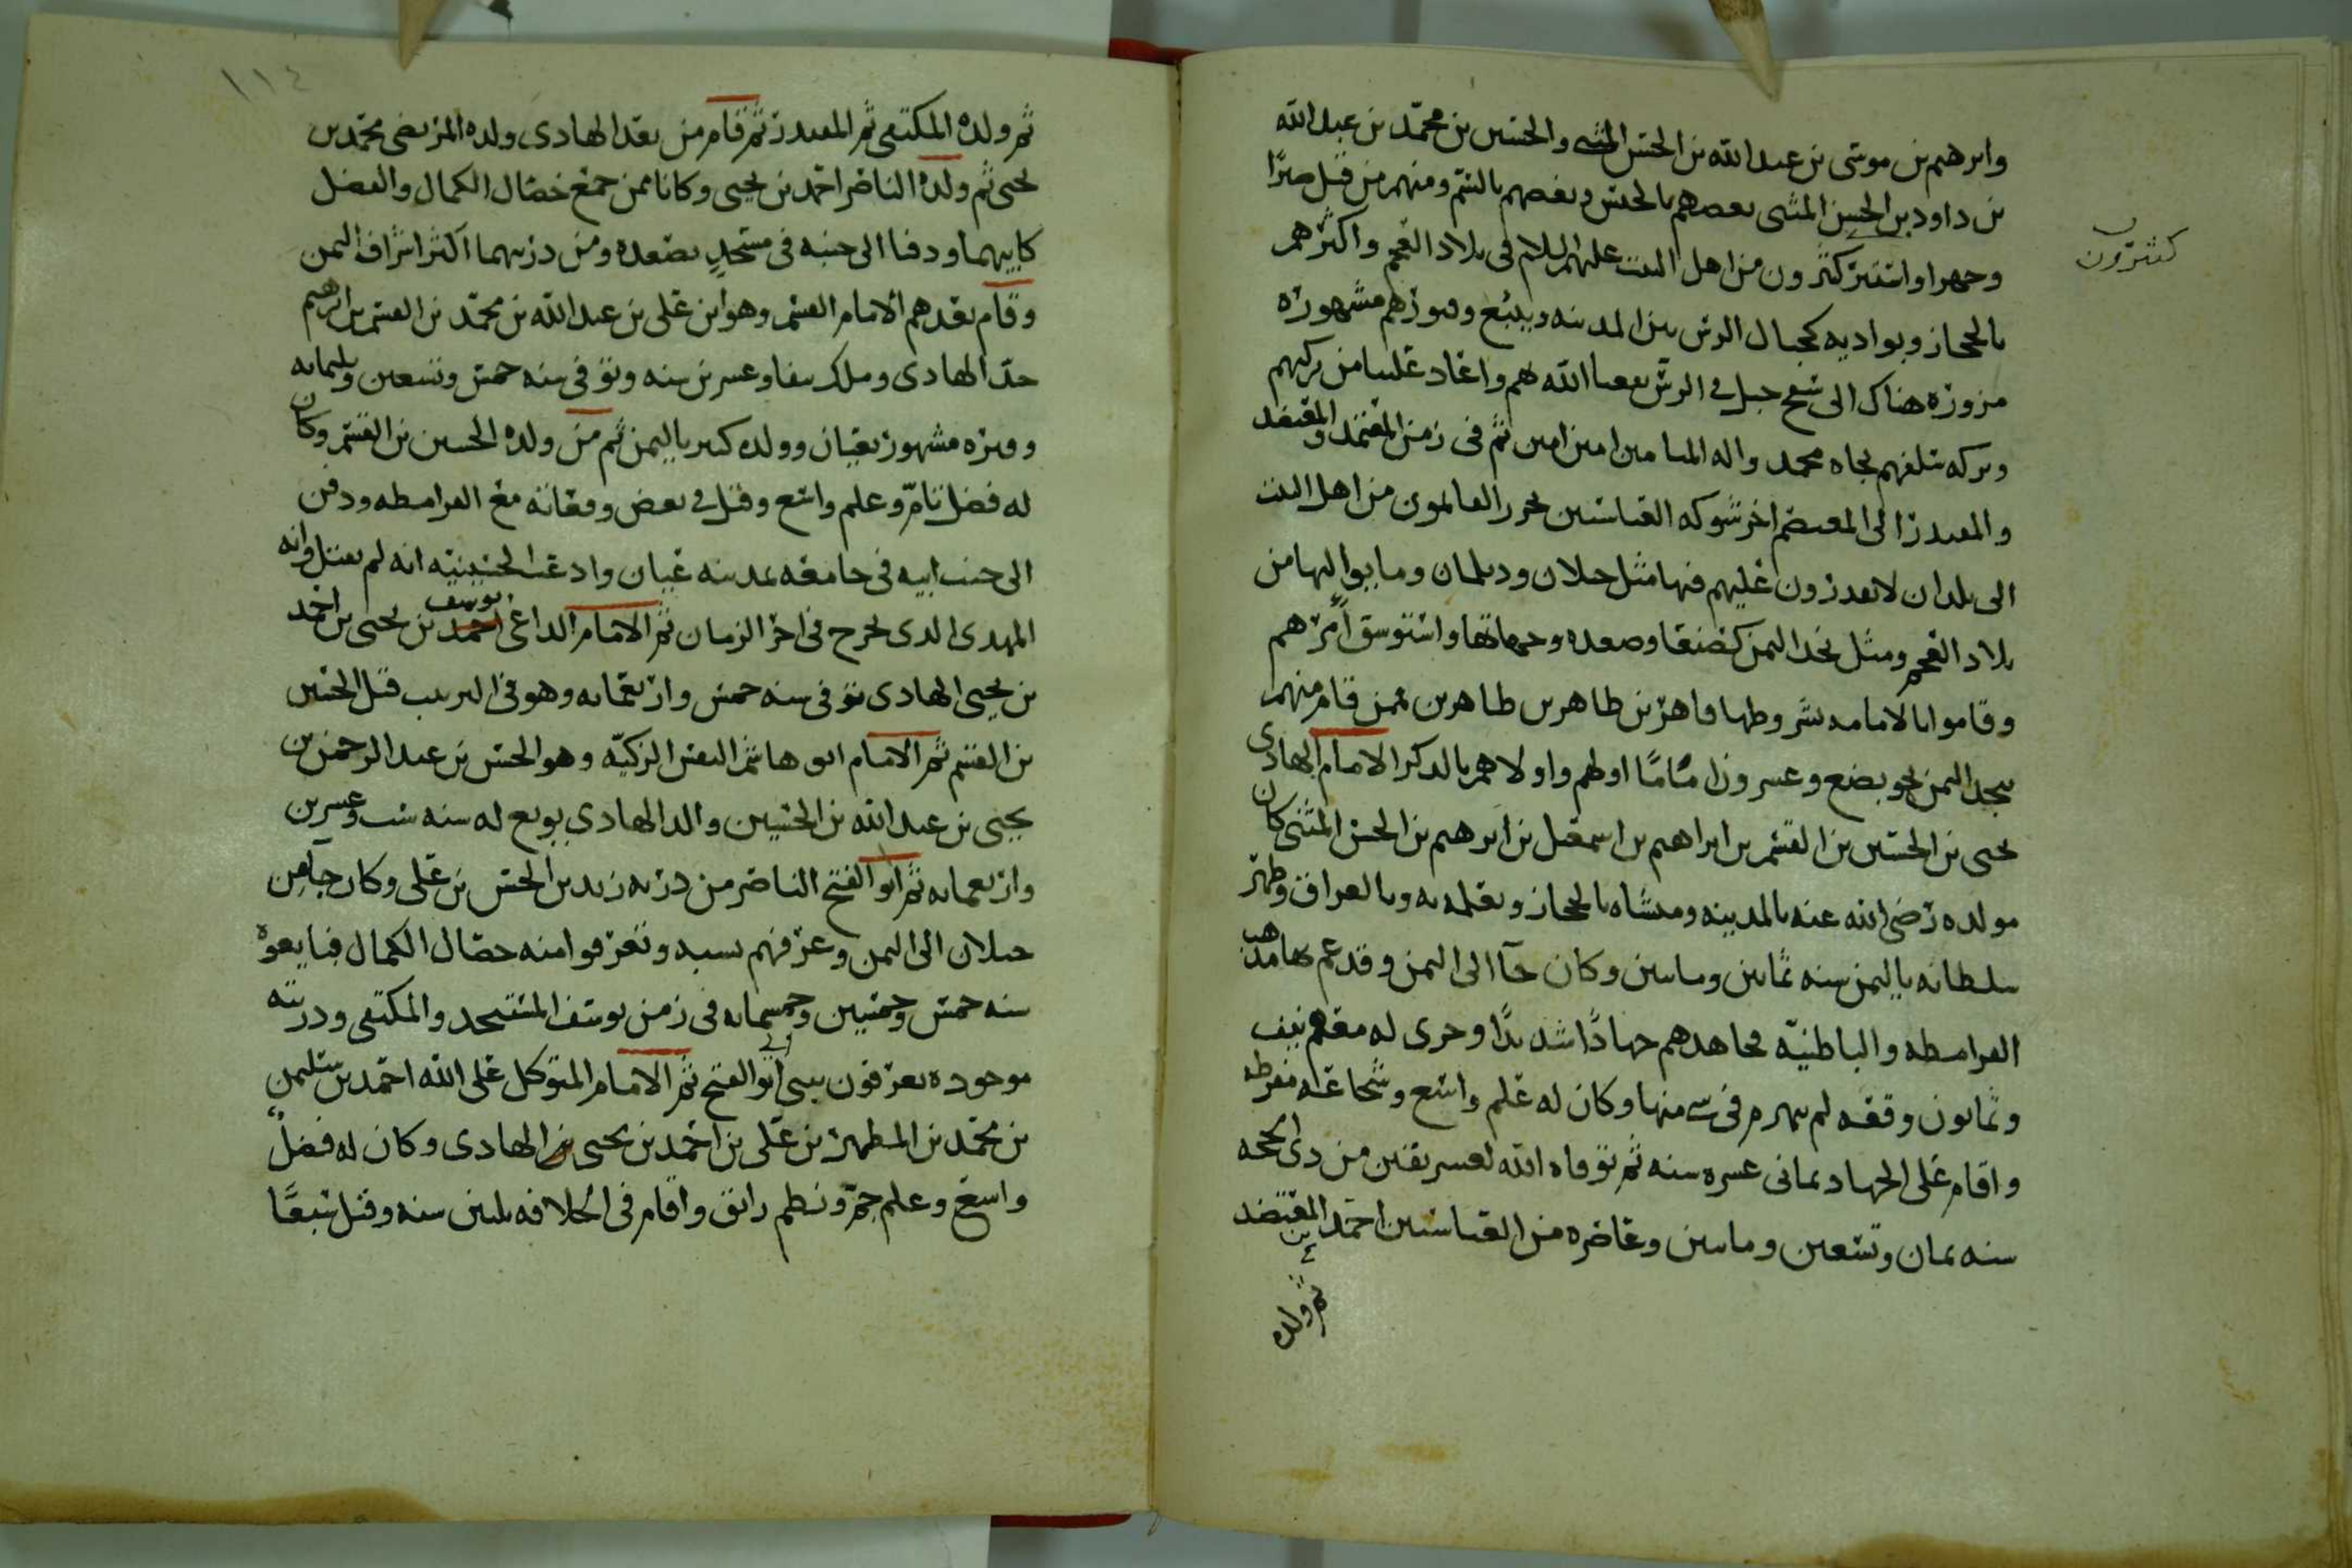 وابرهيم بن موسى بن عبد الله بن الحسن المثنى والحسين بن محمد بن عبد الله
بن داود بن الحسن المثنى بعضهم بالحبس وبعضهم بالسم ومنهم من قتل صبرا
وجهرا واستتر كثيرون من اهل البيت عليهم السلام فى بلاد العجم واكثرهم
كثيرون
بالحجاز وبواديه كجبال الرس بين المدينه وينبع وقبورهم مشهوره
مزوره هناك الى سفح جبل فى الرس نفعنا الله بهم واعاد علينا من بركتهم
وبركه سلفهم بجاه محمد واله الميامين امين امين ثم فى زمن المعتمد والمعتضد
والمقتدر الى المعتصم اخر شوكه العباسيين تحرر القائمون من اهل البيت
الى بلدان لا يقدرون عليهم فيها مثل جيلان وديلمان وما يواليها من
بلاد العجم ومثل نجد اليمن كصنعا وصعده وجهاتها واستوسق امرهم
وقاموا بالامامه بشروطها قاهر بن طاهر بن طاهرين ممن قام منهم
بنجد اليمن نحو بضع وعشرون اماما اولهم واولاهم بالذكر الامام الهادى
يحيى بن الحسين بن القسم بن ابراهيم بن اسمعيل بن ابرهيم بن الحسن المثنى كان
مولده رضى الله عنه بالمدينه ومنشاه بالحجاز وتعلمه به وبالعراق وظهر
سلطانه باليمن سنه ثمانين ومايتين وكان جآ الى اليمن وقد عم بها مذهب
القرامطه والباطنيّه فجاهدهم جهادًا شديدًا وجرى له معهم نيف
وثمانون وقعه لم يهزم فى شى منها وكان له علم واسع وشجاعه مفرطه
واقام على الجهاد ثمانى عشره سنه ثم توفاه الله لعشر بقين من ذى الحجه
سنه ثمان وتسعين ومايتين وعاصره من العباسيين احمد المعتضد
ثم ولده
١١٤
ثم ولده المكتفى ثم المقتدر ثم قام من بعد الهادى ولده المرتضى محمد بن
يحيى ثم ولده الناصر احمد بن يحيى وكانا ممن جمع خصال الكمال والفضل
كابيهما ودفنا الى جنبه فى مسجدٍ بصعده ومن ذريتهما اكثر اشراف اليمن
وقام بعدهم الامام القسم وهو ابن على بن عبد الله بن محمد بن القسم بن ابرهيم
جدّ الهادى وملك نيفا وعشرين سنه وتوفى سنه خمس وتسعين وثلثمايه
وقبره مشهور بعيان وولده كثير باليمن ثم من ولده الحسين بن القسم وكان
له فضل تامّ وعلم واسع وقتل فى بعض وقعاته مع القرامطه ودفن
الى جنب ابيه فى جامعه بمدينه عيان وادعت الحسينيّه انه لم يقتل وانه
المهدى الذى يخرج فى اخر الزمان ثم الامام الداعى احمد يوسف بن يحيى بن احمد
بن يحيى الهادى توفى سنه خمس واربعمايه وهو فى الترتيب قبل الحسين
بن القسم ثم الامام ابو هاشم النفس الزكيّه وهو الحسن بن عبد الرحمن بن
يحيى بن عبد الله بن الحسين والد الهادى بويع له سنه ست وعشرين
واربعمايه ثم ابو الفتح الناصر من ذريه زيد بن الحسن بن على وكان جآ من
جيلان الى اليمن وعرفهم نسبه وتعرفوا منه خصال الكمال فبايعوه
سنه خمس وخمسين وخمسمايه فى زمن يوسف المستنجد والمكتفى وذريته
موجوده يعرفون ببنى ابو الفتح ثم الامام المتوكل على الله احمد بن سليمن
بن محمد بن المطهر بن على بن احمد بن يحيى بن الهادى وكان له فضلٌ
واسع وعلم جمّ ونظم رائق واقام فى الخلافه ثلثين سنه وقتل تبعًا